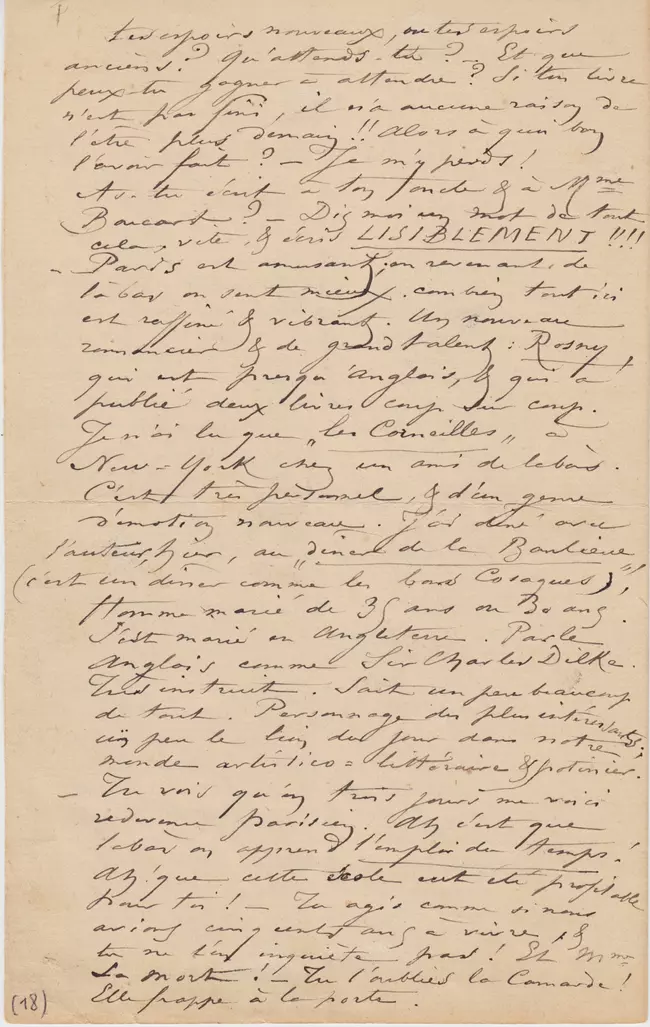 tes espoirs nouveaux, ou tes espoirs
anciens? Qu'attends-tu? – Et que
peux-tu gagner à attendre? Si ton livre
n'est pas fini, il n'a aucune raison de
l'être plus demain!! Alors à quoi bon
l'avoir fait? – Je m'y perds!
As-tu écrit à ton oncle & à Mme
Boucard? – Dis moi un mot de tout
cela, vite, & écris LISIBLEMENT!!!!
– Paris est amusant; en revenant de
làbas on sent mieux combien tout ici
est raffiné & vibrant. Un nouveau
romancier & de grand talent: Rosny,
qui est presqu'anglais, & qui a
publié deux livres coup sur coup.
Je n'ai lu que „les Corneilles„ à
New-York chez un ami de làbas.
C'est très personnel, & d'un genre
d'émotion nouveau. J'ai diné avec
l'auteur, hier, au „diner de la Banlieue„
(c'est un diner comme les bons Cosaques)!
Homme marié de 35 ans ou 30 ans.
S'est marié en Angleterre. Parle
Anglais comme Sir Charles Dilke.
Très instruit. Sait un peu beaucoup
de tout. Personnage des plus intéressants;
un peu le lion du jour dans notre
monde artistico=littéraire & potinier.
– Tu vois qu'en trois jours me voici
redevenu parisien. Ah c'est que
làbas on apprend l'emploi du temps!
Ah! que cette école eut été profitable
pour toi! – Tu agis comme si nous
avions cinquante ans à vivre, &
tu ne t'en inquiète pas! Et Mme
La Mort!! – Tu l'oublies la Camarde!
Elle frappe à la porte.
(18)